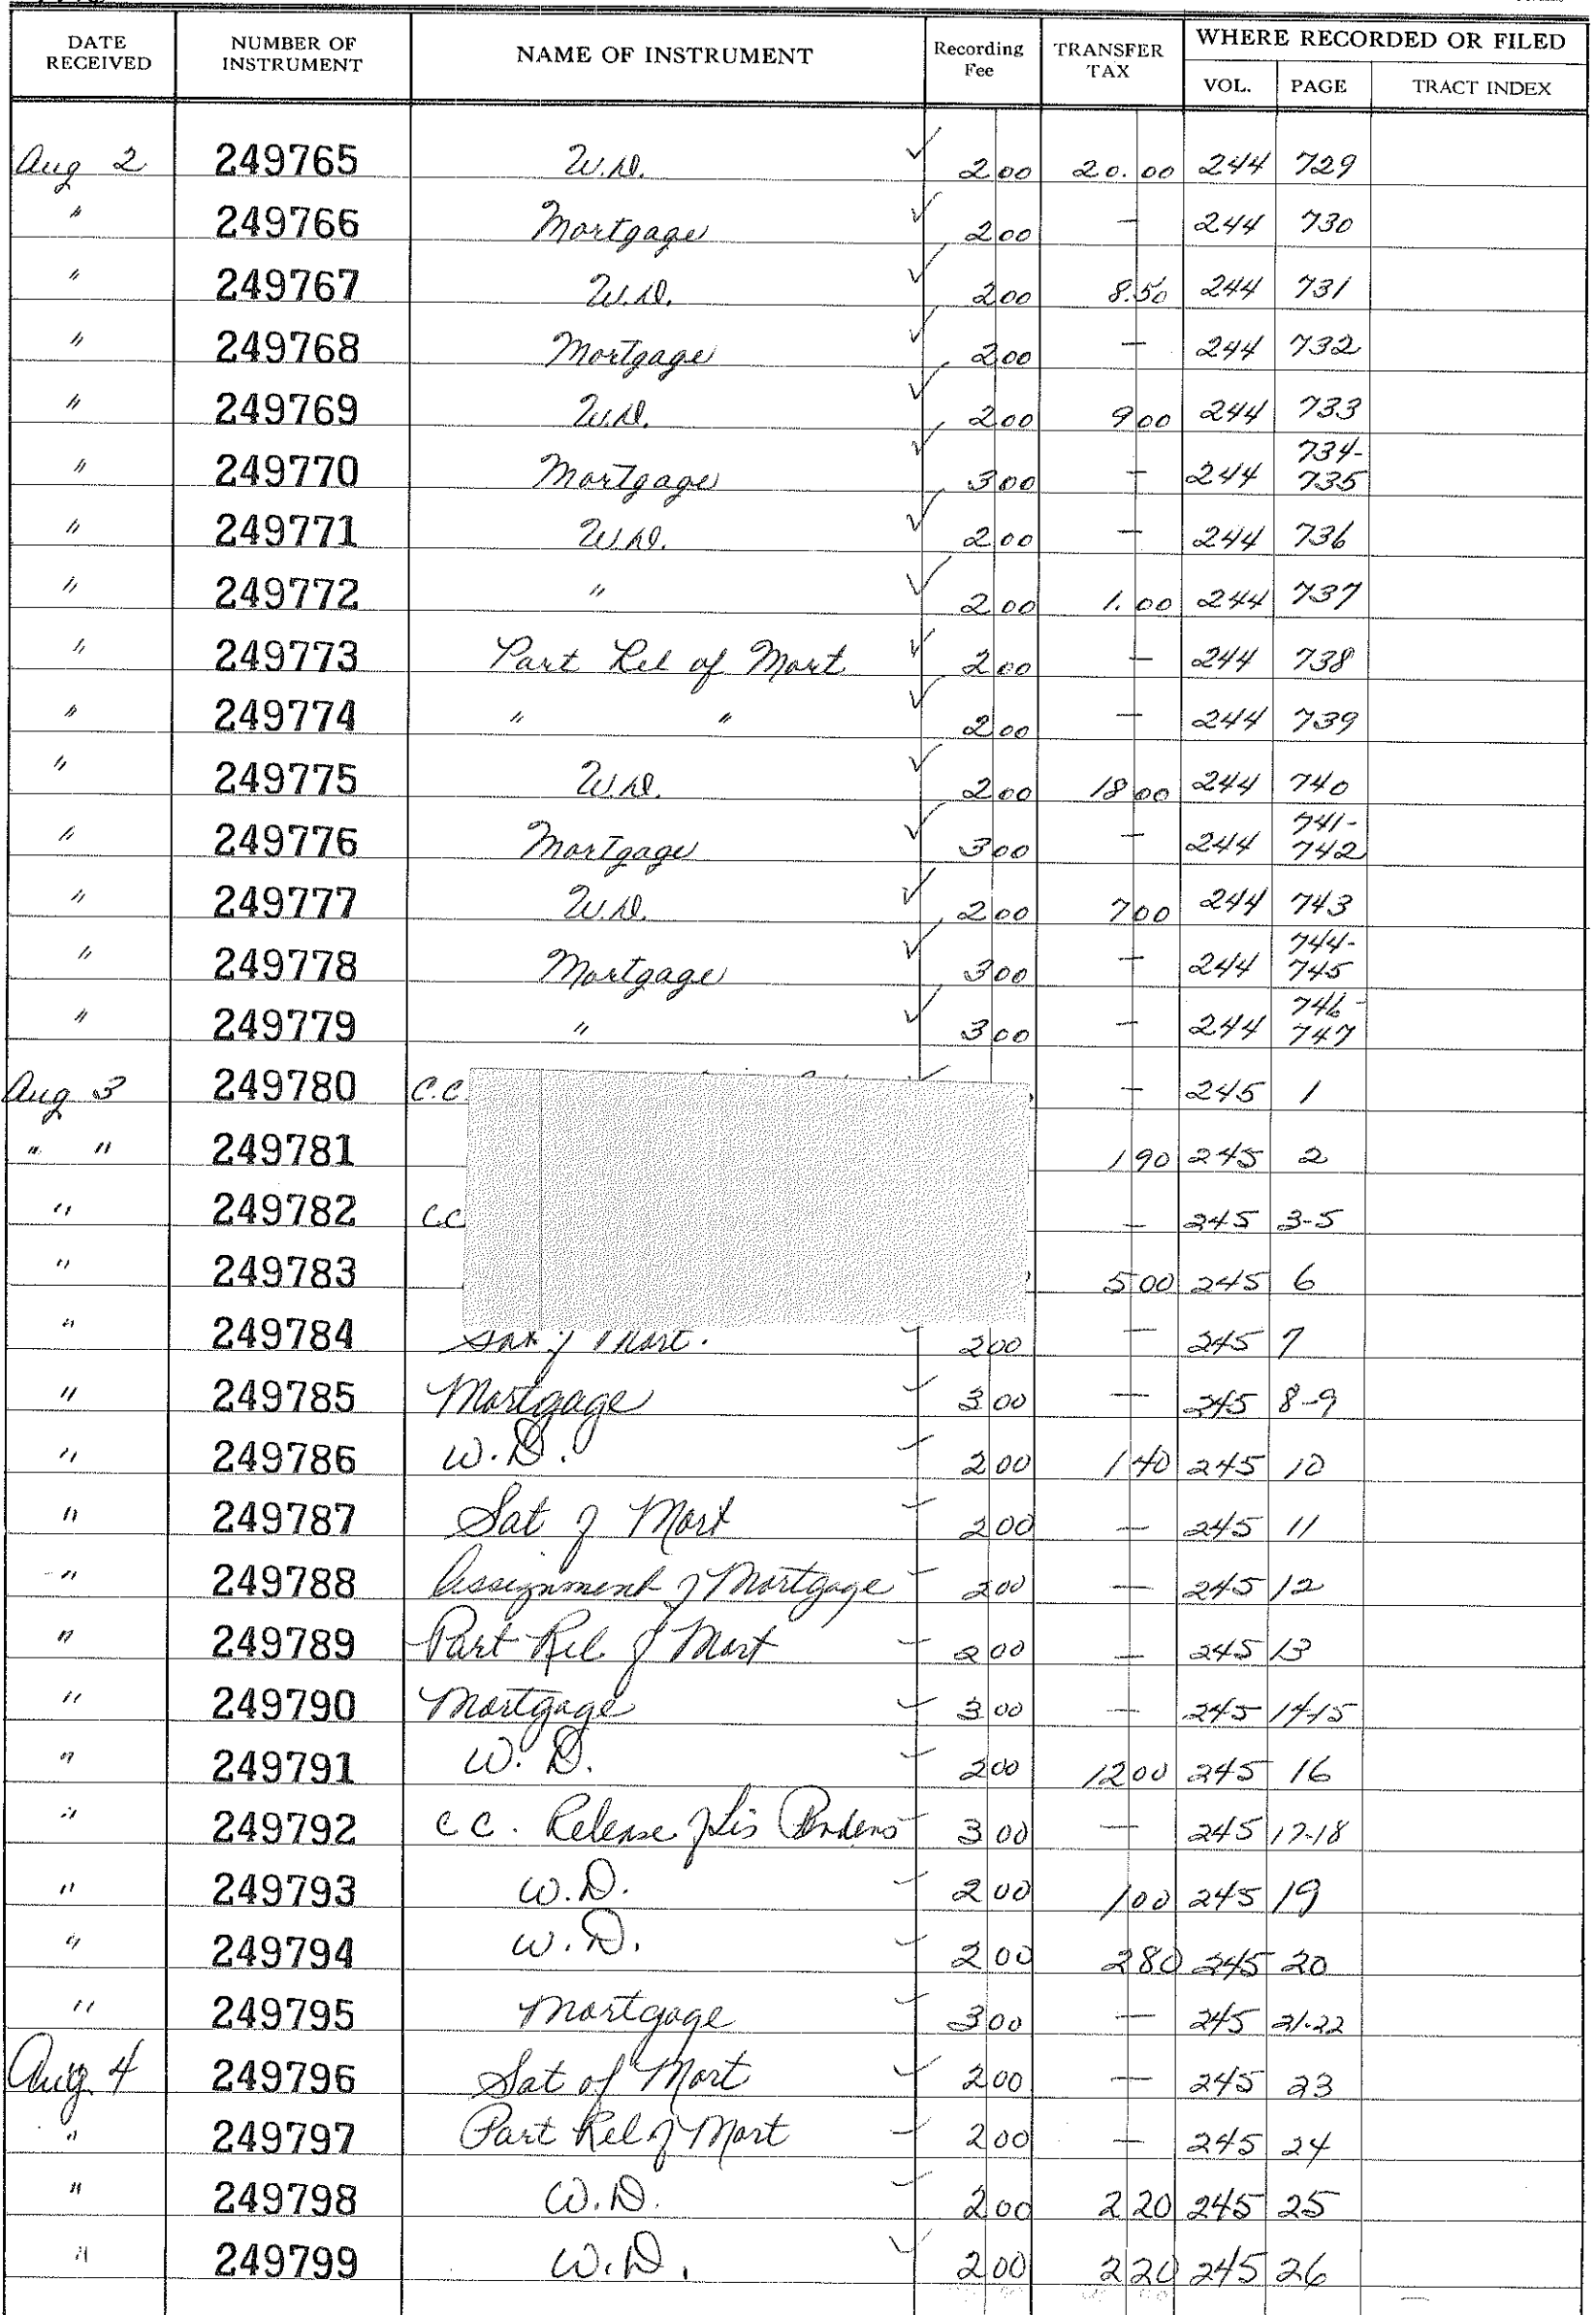 DATE RECEIVED NUMBER OF INSTRUMENT NAME OF INSTRUMENT Recording Fee TRANSFER TAX WHERE RECORDED OR FILED
VOL. PAGE TRACT INDEX
Aug 2 249765 W.D. ✓ 2 00 20.00 244 729
" 249766 Mortgage ✓ 2 00 — 244 730
" 249767 W.D. ✓ 2 00 8.50 244 731
" 249768 Mortgage ✓ 2 00 — 244 732
" 249769 W.D. ✓ 2 00 9 00 244 733
" 249770 Mortgage ✓ 3 00 — 244 734-735
" 249771 W.D. ✓ 2 00 — 244 736
" 249772 " ✓ 2 00 1.00 244 737
" 249773 Part Rel of Mort ✓ 2 00 — 244 738
" 249774 " " ✓ 2 00 — 244 739
" 249775 W.D. ✓ 2 00 18 00 244 740
" 249776 Mortgage ✓ 3 00 — 244 741-742
" 249777 W.D. ✓ 2 00 7 00 244 743
" 249778 Mortgage ✓ 3 00 — 244 744-745
" 249779 " ✓ 3 00 — 244 746-747
Aug 3 249780 C.C. — 245 1
" " 249781 1 90 245 2
" 249782 C.C — 245 3-5
" 249783 5 00 245 6
" 249784 Sat of Mort. ✓ 2 00 — 245 7
" 249785 Mortgage ✓ 3 00 — 245 8-9
" 249786 W.D. ✓ 2 00 1 40 245 10
" 249787 Sat of Mort ✓ 2 00 — 245 11
" 249788 Assignment of Mortgage ✓ 2 00 — 245 12
" 249789 Part Rel. of Mort ✓ 2 00 — 245 13
" 249790 Mortgage ✓ 3 00 — 245 14-15
" 249791 W.D. ✓ 2 00 12 00 245 16
" 249792 C C. Release of Lis Pendens ✓ 3 00 — 245 17-18
" 249793 W.D. ✓ 2 00 1 00 245 19
" 249794 W.D. ✓ 2 00 2 80 245 20
" 249795 Mortgage ✓ 3 00 — 245 21-22
Aug. 4 249796 Sat of Mort ✓ 2 00 — 245 23
" 249797 Part Rel of Mort ✓ 2 00 — 245 24
" 249798 W.D. ✓ 2 00 2 20 245 25
" 249799 W.D. ✓ 2 00 2 20 245 26